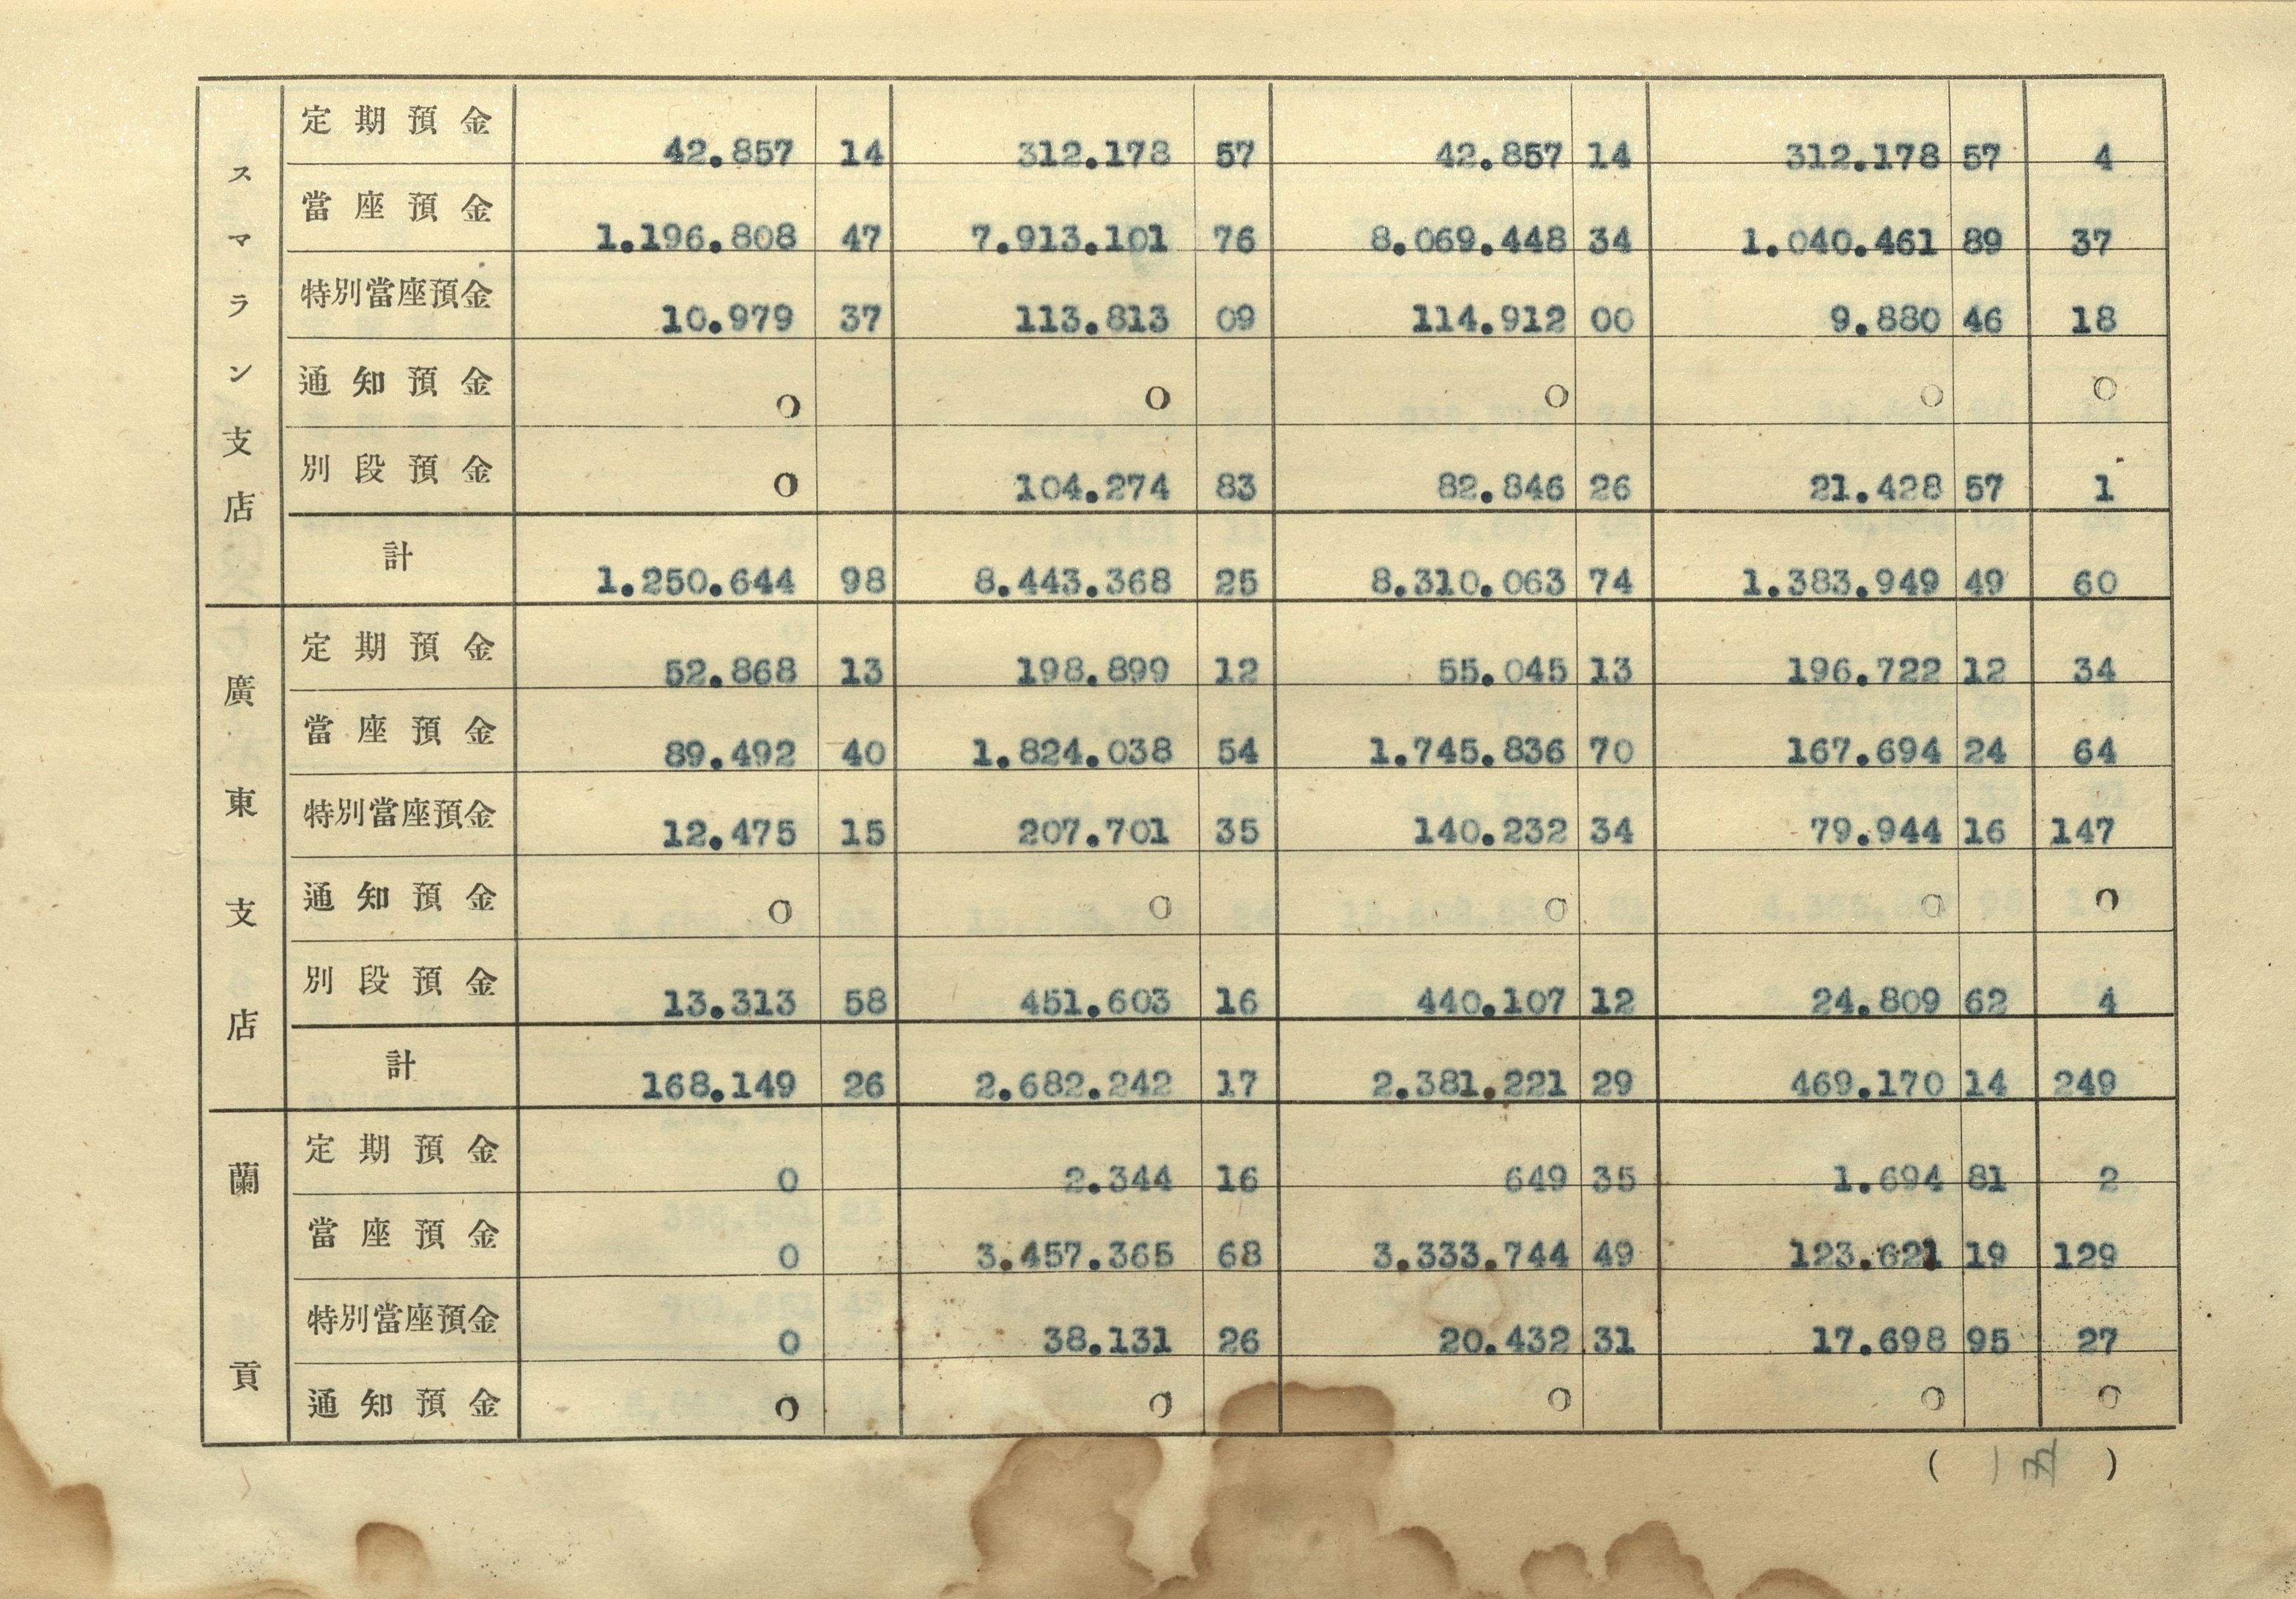 スマラン支店
定期預金 42.857 14 312.178 57 42.857 14 312.178 57 4
當座預金 1.196.808 47 7.913.101 76 8.069.448 34 1.040.461 89 37
特別當座預金 10.979 37 113.813 09 114.912 00 9.880 46 18
通知預金 0 0 0 0 0
別段預金 0 104.274 83 82.846 26 21.428 57 1
計 1.250.644 98 8.443.368 25 8.310.063 74 1.383.949 49 60
廣東支店
定期預金 52.868 13 198.899 12 55.045 13 196.722 12 34
當座預金 89.492 40 1.824.038 54 1.745.836 70 167.694 24 64
特別當座預金 12.475 15 207.701 35 140.232 34 79.944 16 147
通知預金 0 0 0 0 0
別段預金 13.313 58 451.603 16 440.107 12 24.809 62 4
計 168.149 26 2.682.242 17 2.381.221 29 469.170 14 249
蘭貢
定期預金 0 2.344 16 649 35 1.694 81 2
當座預金 0 3.457.365 68 3.333.744 49 123.621 19 129
特別當座預金 0 38.131 26 20.432 31 17.698 95 27
通知預金 0 0 0 0 0
(一五)